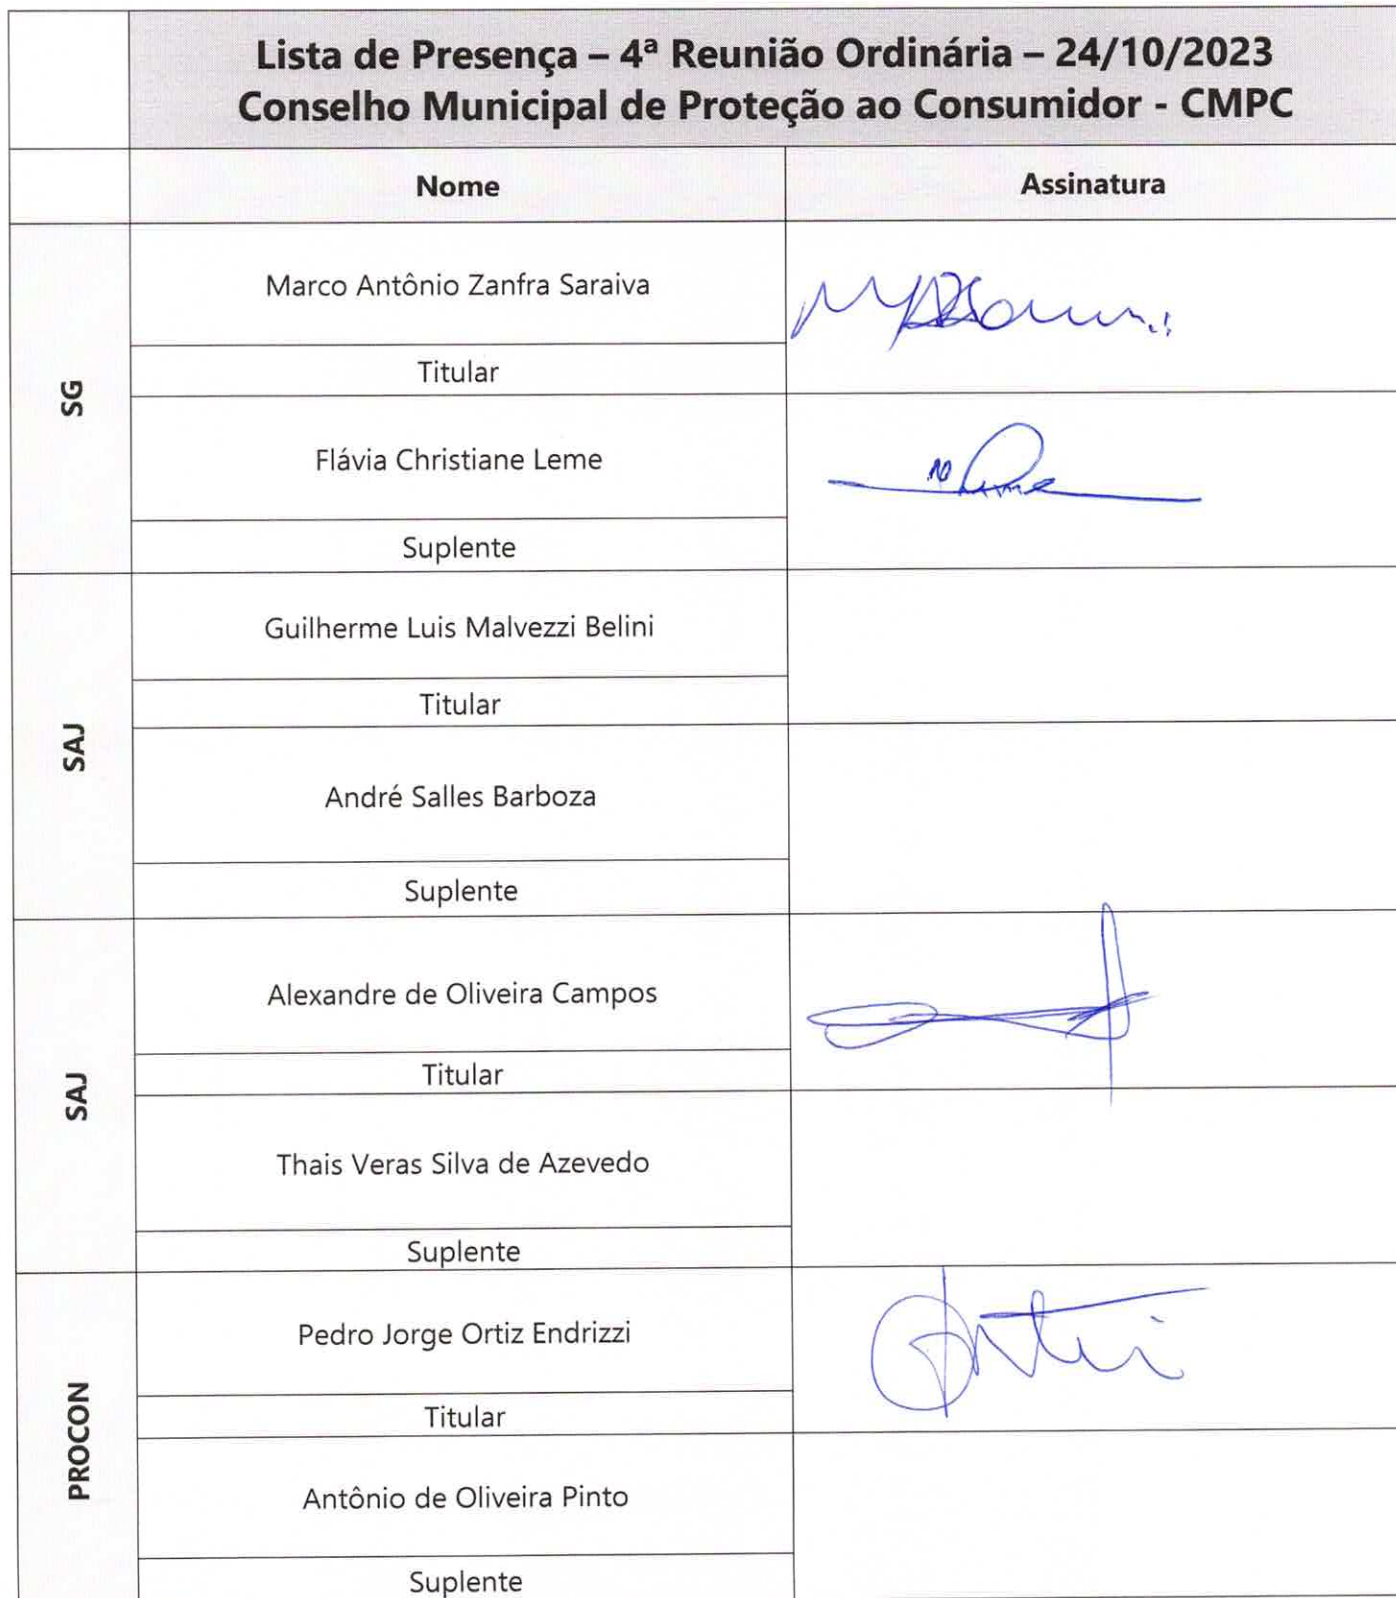 Lista de Presença – 4ª Reunião Ordinária – 24/10/2023
Conselho Municipal de Proteção ao Consumidor - CMPC
Nome
Assinatura
SG
Marco Antônio Zanfra Saraiva
Titular
Flávia Christiane Leme
Suplente
SAJ
Guilherme Luis Malvezzi Belini
Titular
André Salles Barboza
Suplente
SAJ
Alexandre de Oliveira Campos
Titular
Thais Veras Silva de Azevedo
Suplente
PROCON
Pedro Jorge Ortiz Endrizzi
Titular
Antônio de Oliveira Pinto
Suplente